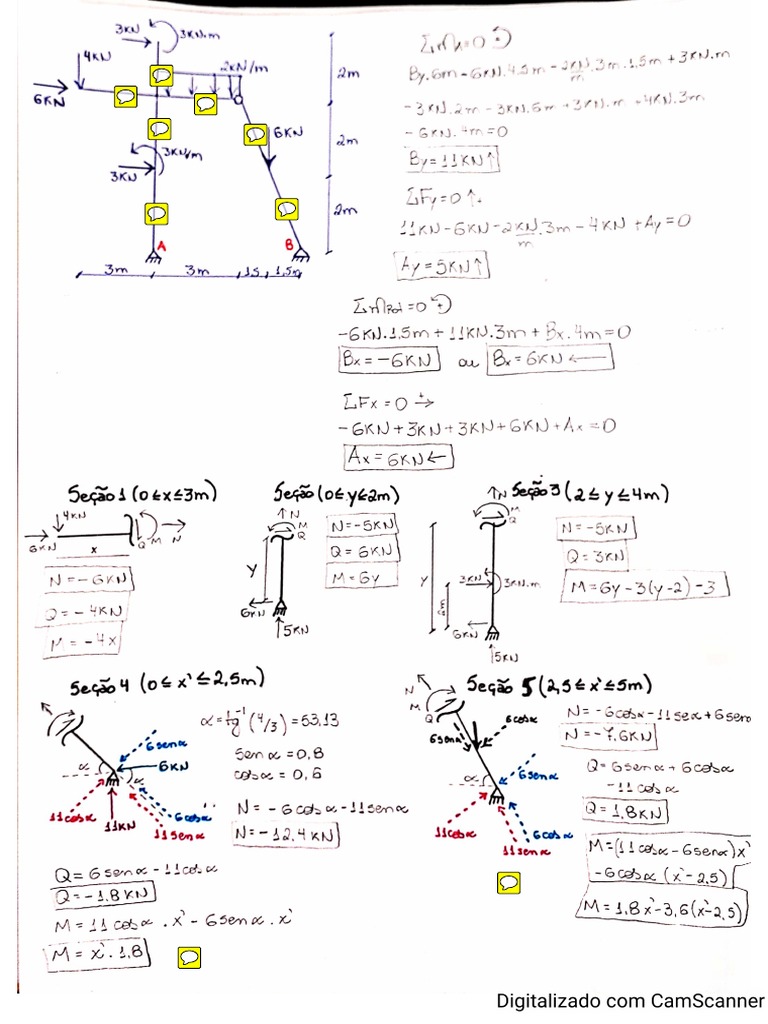 3KN
3KN.m
4KN
2KN/m
2m
6KN
6KN
2m
3KN/m
3KN
2m
A
B
3m
3m
1,5
1,5m
ΣM_A=0
By.6m - 6KN.4,5m - 2KN/m.3m.1,5m + 3KN.m
- 3KN.2m - 3KN.6m + 3KN.m + 4KN.3m
- 6KN.4m=0
By=11KN↑
ΣFy=0↑+
11KN-6KN-2KN/m.3m-4KN+Ay=0
Ay=5KN↑
ΣM_Rot=0
-6KN.1,5m+11KN.3m+Bx.4m=0
Bx=-6KN ou Bx=6KN←
ΣFx=0 →+
-6KN+3KN+3KN+6KN+Ax=0
Ax=6KN←
Seção 1 (0≤x≤3m)
4KN
6KN
x
Q
M
N
N=-6KN
Q=-4KN
M=-4x
Seção (0≤y≤2m)
N
M
Q
y
6KN
5KN
N=-5KN
Q=6KN
M=6y
Seção 3 (2≤y≤4m)
N
M
Q
y
3KN
3KN.m
2m
6KN
5KN
N=-5KN
Q=3KN
M=6y-3(y-2)-3
Seção 4 (0≤x'≤2,5m)
α=tg⁻¹(4/3)=53,13
senα=0,8
cosα=0,6
6senα
6KN
α
α
11cosα
11KN
11senα
6cosα
N=-6cosα-11senα
N=-12,4KN
Q=6senα-11cosα
Q=-1,8KN
M=11cosα.x'-6senα.x'
M=x'.1,8
Seção 5 (2,5≤x'≤5m)
N
M
Q
6senα
6cosα
α
6senα
11cosα
11senα
6cosα
N=-6cosα-11senα+6senα
N=-7,6KN
Q=6senα+6cosα
-11cosα
Q=1,8KN
M=(11cosα-6senα)x'
-6cosα(x'-2,5)
M=1,8x'-3,6(x'-2,5)
Digitalizado com CamScanner